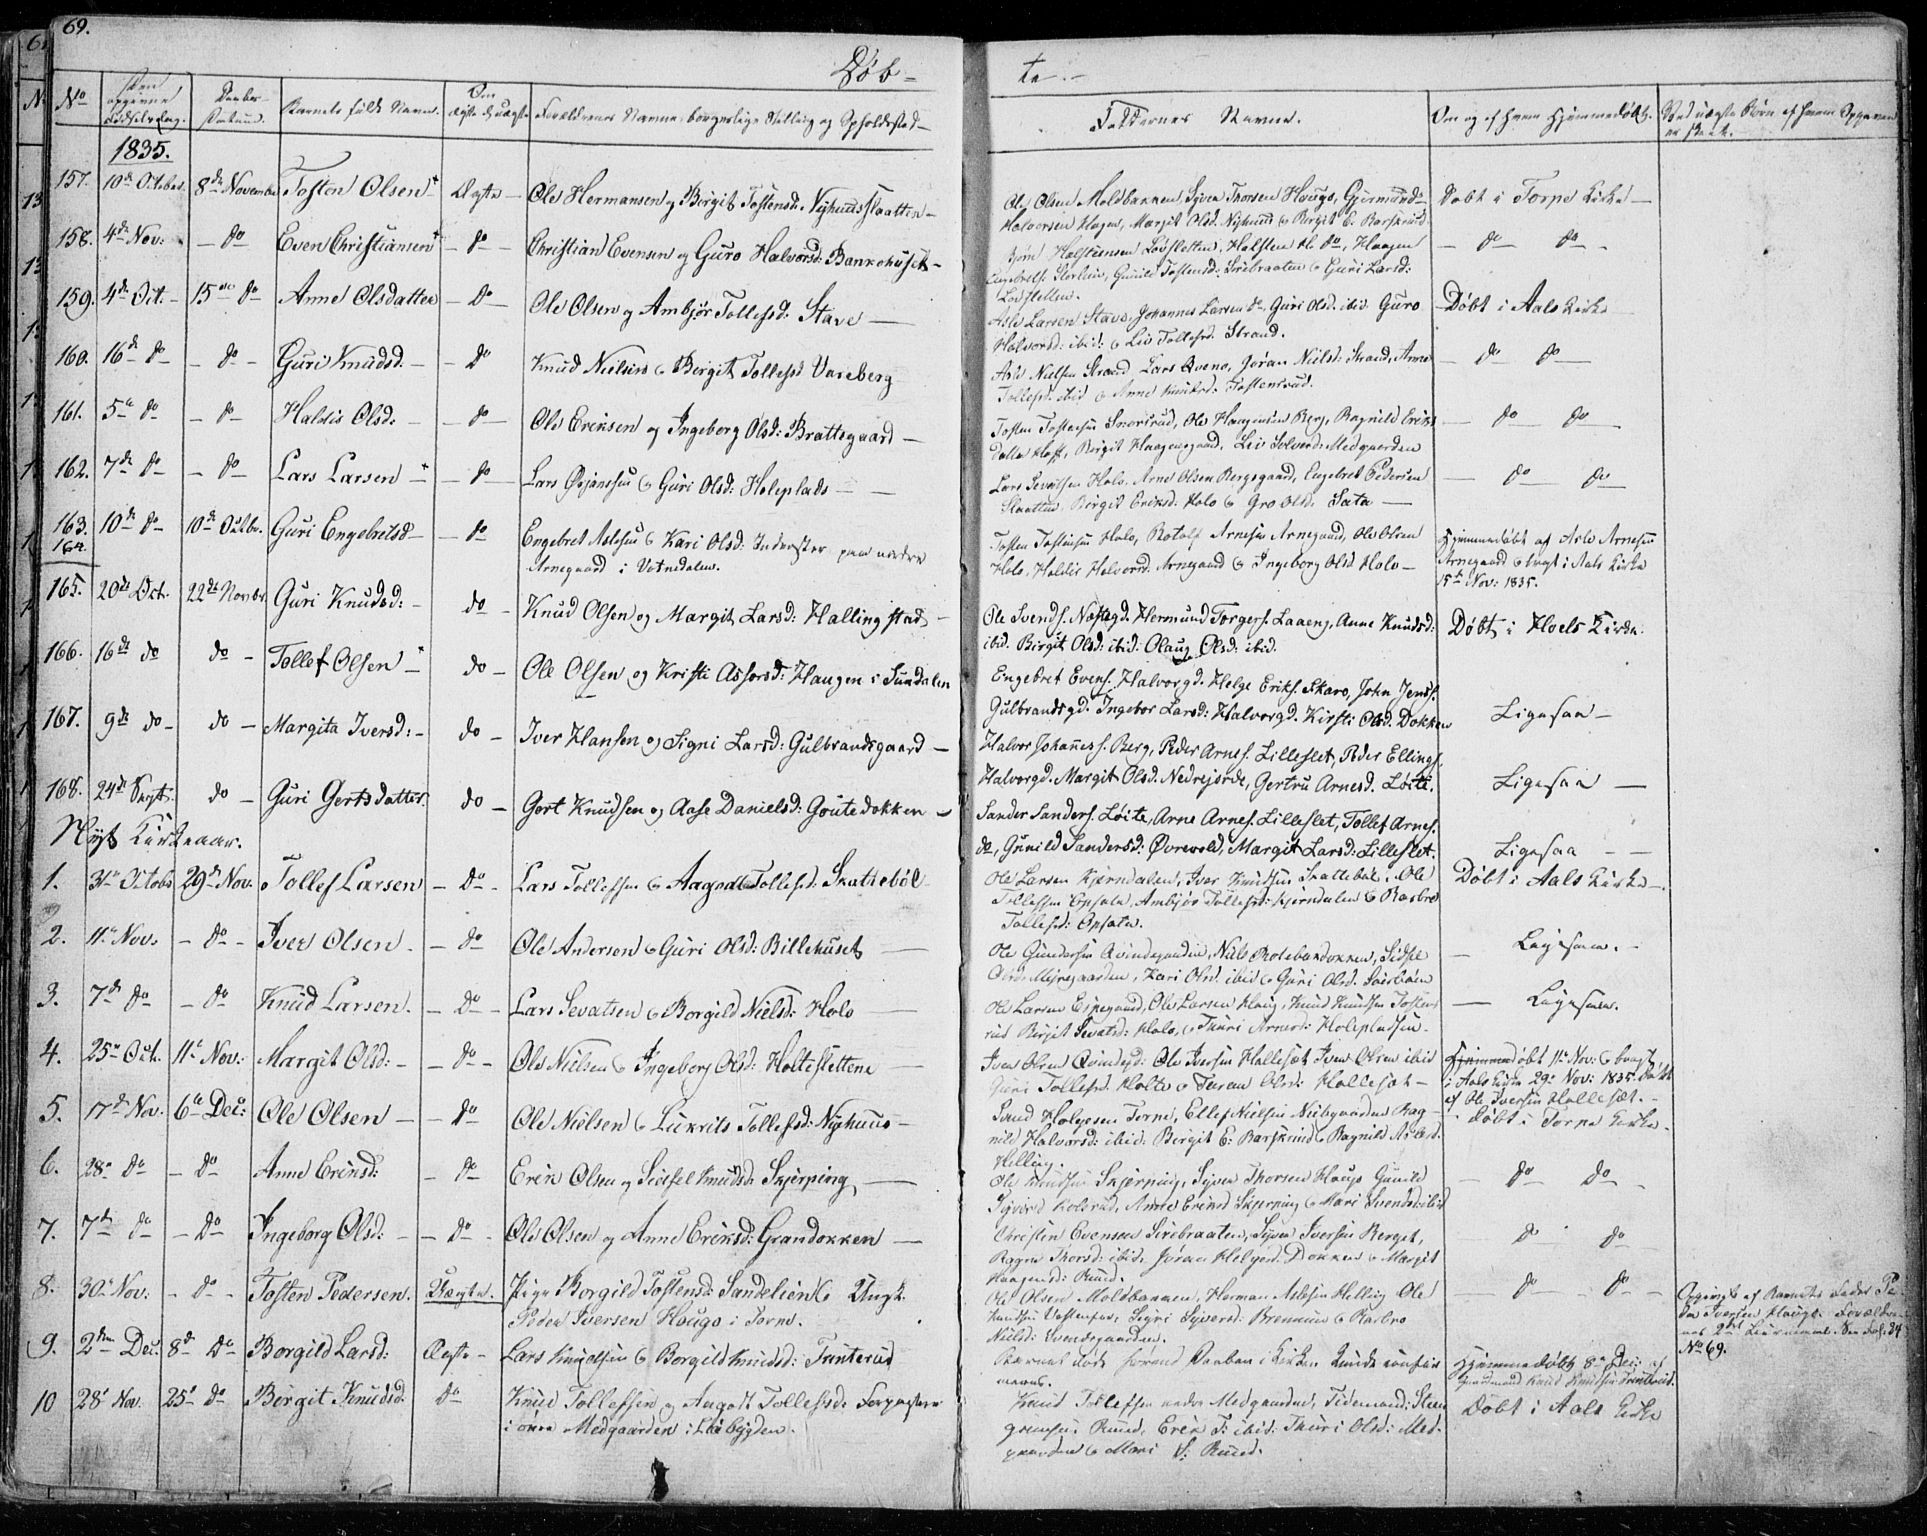 69.
Døb-
te.-
No
Den angivne Fødselsdag.
Daabs-Datum.
Barnets fulde Navn.
Om ægte el. uægte
Forældrenes Navne, borgerlige Stilling og Opholdssted
Faddernes Navne.
Om og af hvem Hjemmedøbt.
Ved uægte Børn af hvem Opgaven er skeet.
1835.
157. 10de October 8de November Tosten Olsen Ægte - Ole Hermansen og Birgit Tostensd. Nyhuusslaatten -
Ole Olsen Moldbakken, Syver Thorsen Hauge, Guemund
Halvorsen Hagen, Margit Olsd. Nyhuus & Birgit E. Barskrud
Døbt i Torpe Kirke -
158. 4de Nov: - do Even Christiansen - do - Christian Evensen og Guro Halvorsd: Bankehuset -
Bjørn Halsteensen Løvsletten, Halsten H. do, Haagen
Engebrets. Storlien, Gunild Tostensd: Sirebraaten & Guri Larsd:
Løvsletten.
- do do -
159. 4de Oct. - 15de do Anne Olsdatter - Do - Ole Olsen og Ambjør Tollefsd: Stave -
Asle Larsen Stave, Johannes Larsen do, Guri Olsd. ibid Guro
Halvorsd: ibid: & Liv Tollefsd. Strand.
Døbt i Aals Kirke
160. 16de do - do - Guri Knudsd. - - Do Knud Nielsen & Birgit Tollefsd Vareberg
Asle Nielsen Strand Lars Qveno, Jøran Nielsd: Strand, Anne
Tollefsd. ibid & Anne Knudsd. Tostensrud.
- do do -
161. 5te do - do - Haldis Olsd. - - do - Ole Eriksen og Ingeborg Olsd: Brattegaard -
Tosten Tostensen Snersrud, Ole Haagensen Berg, Ragnild Eriks
datter Hoff, Birgit Haagensgaard, Liv Solvesd: Medgaarden
- do do -
162. 7de do - do Lars Larsen - - do - Lars Ørjansen & Guri Olsd: Holeplads -
Lars Sevatsen Holo. Arne Olsen Bergegaard, Engebret Pedersen
Slaatten Birgit Eriksd: Holo & Gro Olsd. Sata -
- do do -
163. 10de do - 10de Octbr. Guri Engebretsd - - do Engebret Aslesen & Kari Olsd: Inderster paa nedre
164.
Arnegaard i Votndalen.
Tosten Tostensen Holo, Rotolf Arnesen Arnegaard, Ole Olsen
Holo, Haldis Halvorsd: Arnegaard & Ingeborg Olsd Holo -
Hjemmedøbt af Asle Arnesen
Arnegaard & bragt i Aals Kirke
15de Nov: 1835.
165. 20de Oct. 22de Novbr. Guri Knudsd: - do - Knud Olsen og Margit Larsd: Hallingstad -
Ole Svends. Næstegd. Hermund Torgers. Laaeng, Anne Knudsd:
ibid. Birgit Olsd: ibid: Olaug Olsd: ibid.
Døbt i Hoels Kirke.
166. 16de do do - Tollef Olsen - do - Ole Olsen og Kristi Assorsd: Haugen i Sundalen
Engebret Evens. Halvorgd. Helge Eriks. Skaro, John Jens.
Gulbrandsgd. Ingebor Larsd: Halvorgd. Kirsti Olsd. Dokken
Ligesaa -
167. 9de do - do - Margita Iversd: - do - Iver Hansen og Signi Larsd: Gulbrandsgaard -
Halvor Johaness. Berg, Peder Arnes. Lilleslet, Peder Ellings.
Halvorgd. Margit Olsd. Nedrejorde, Gertru Arnesd. Løite.
Ligesaa -
168. 24de Sept. do - Guri Gertsdatter. do - Gert Knudsen og Aase Daniels​d: Goutedokken -
Sander Sanders. Løite, Arne Arnes. Lilleslet, Tollef Arnes.
do, Gunild Sandersd: Øvrevold, Margit Larsd: Lilleslet.
Ligesaa - -
Nyt Kirkeaar.
1. 31te Octobr 29de Nov. Tollef Larsen - Do - Lars Tollefsen & Aagodt Tollefsd. Skattebøl
Ole Larsen Kjerndalen, Iver Knudsen Skattebøl, Ole
Tollefsen Opsata, Ambjør Tollefsd: Kjerndalen & Barbro
Tollefsd: Opsata.
Døbt i Aals Kirke -
2. 11te Nov. - do - Iver Olsen - - do - Ole Andersen & Guri Olsd: Billehuset -
Ole Gundersen Qvindegarden, Niels Brotebakdokken, Sidsel
Mejregaarden, Kari Olsd. ibid & Guri Olsd.
- Ligesaa. -
3. 7de do - do Knud Larsen. - Do - Lars Sevatsen & Borgild Nielsd: Holo -
Ole Larsen Espegaard, Ole Larsen Haug, Knud Knudsen Tostens
rud Birgit Sevatsd: Holo, & Thuri Arnesd: Holepladsen.
- Ligesaa.
4. 25de Oct. 11te Nov: Margit Olsd: - - do - Ole Nielsen & Ingeborg Olsd: Holteslettene -
Iver Olsen Qvindegd: Ole Iversen Hallesæt Iver Olsen ibid
Guri Tollefsd. Holte & Turan Olsd: Hallesæt -
Hjemmedøbt 11te Nov: & bragt
i Aals Kirke 29de Nov: 1835. Døbt
af Ole Iversen Hallesæt. -
5. 17de Nov. 6te Dec: Ole Olsen - - do Ole Nielsen & Lukrits Tollefsd: Nyhuus -
Svend Holgesen Torpe, Ellef Nielsen Nubgaarden Rag-
nild Halvorsd: ibid: Birgit E: Barskrud & Ragnild Aslesd.
Helling.
- Døbt i Torpe Kirke -
6. 28de do - do Anne Eriksd: - do Erik Olsen og Sidsel Knudsd. Skjerping -
Ole Knudsen Skjerping, Syver Thorsen Hauge Gunild
Syversd Kolsrud, Anne Eriksd Skjerping & Mari Svendsd ibid
- do do -
7. 7de do - do Ingeborg Olsd: - - do - Ole Olsen og Anne Eriksd: Grandokken -
Christen Evensen Sirebraaten, Syver Iversen Berget,
Ragne Thorsd: ibid, Jøran Helgesd. Dokken & Margit
Haagensd: Ruud.
do do
8. 30te Nov: - do - Tosten Pedersen. Uægte. Pige Borgild Tostensd: Sandelien & Ungk.
Peder Iversen Haugo i Torpe.
Ole Olsen Moldbakken, Herman Aslesen Helling Ole
Knudsen Vestenfor, Sigri Syversd: Brennum & Barbro
Nielsd: Svendsgaarden.
- do do -
Opgivet af Barnets Fader Pe-
der Iversen Hauge. Forældre-
nes 2det Leiermaal. See Fol: 34
No 69.
9. 2den Dec. 8de Do Borgild Larsd: Ægte - Lars Knudsen & Borgild Knudsd: Trinterud
Barnet døde førend Daaben i Kirken kunde confir
meres.
Hjemmedøbt 8de Dec: af
Gaardmand Knud Knudsen Trinterud.
10 28de Nov. 25de do Birgit Knudsd. do Knud Tollefsen og Aagodt Tollefsd: Forpagtere
i øvre Medgaarden i Liabygden.
Knud Tollefsen nedre Medgaarden, Tidemand Steen
grimsen Ruud, Erik T: ibid: Thuri Olsd: Med-
gaarden & Mari S: Ruud.
Døbt i Aals Kirke